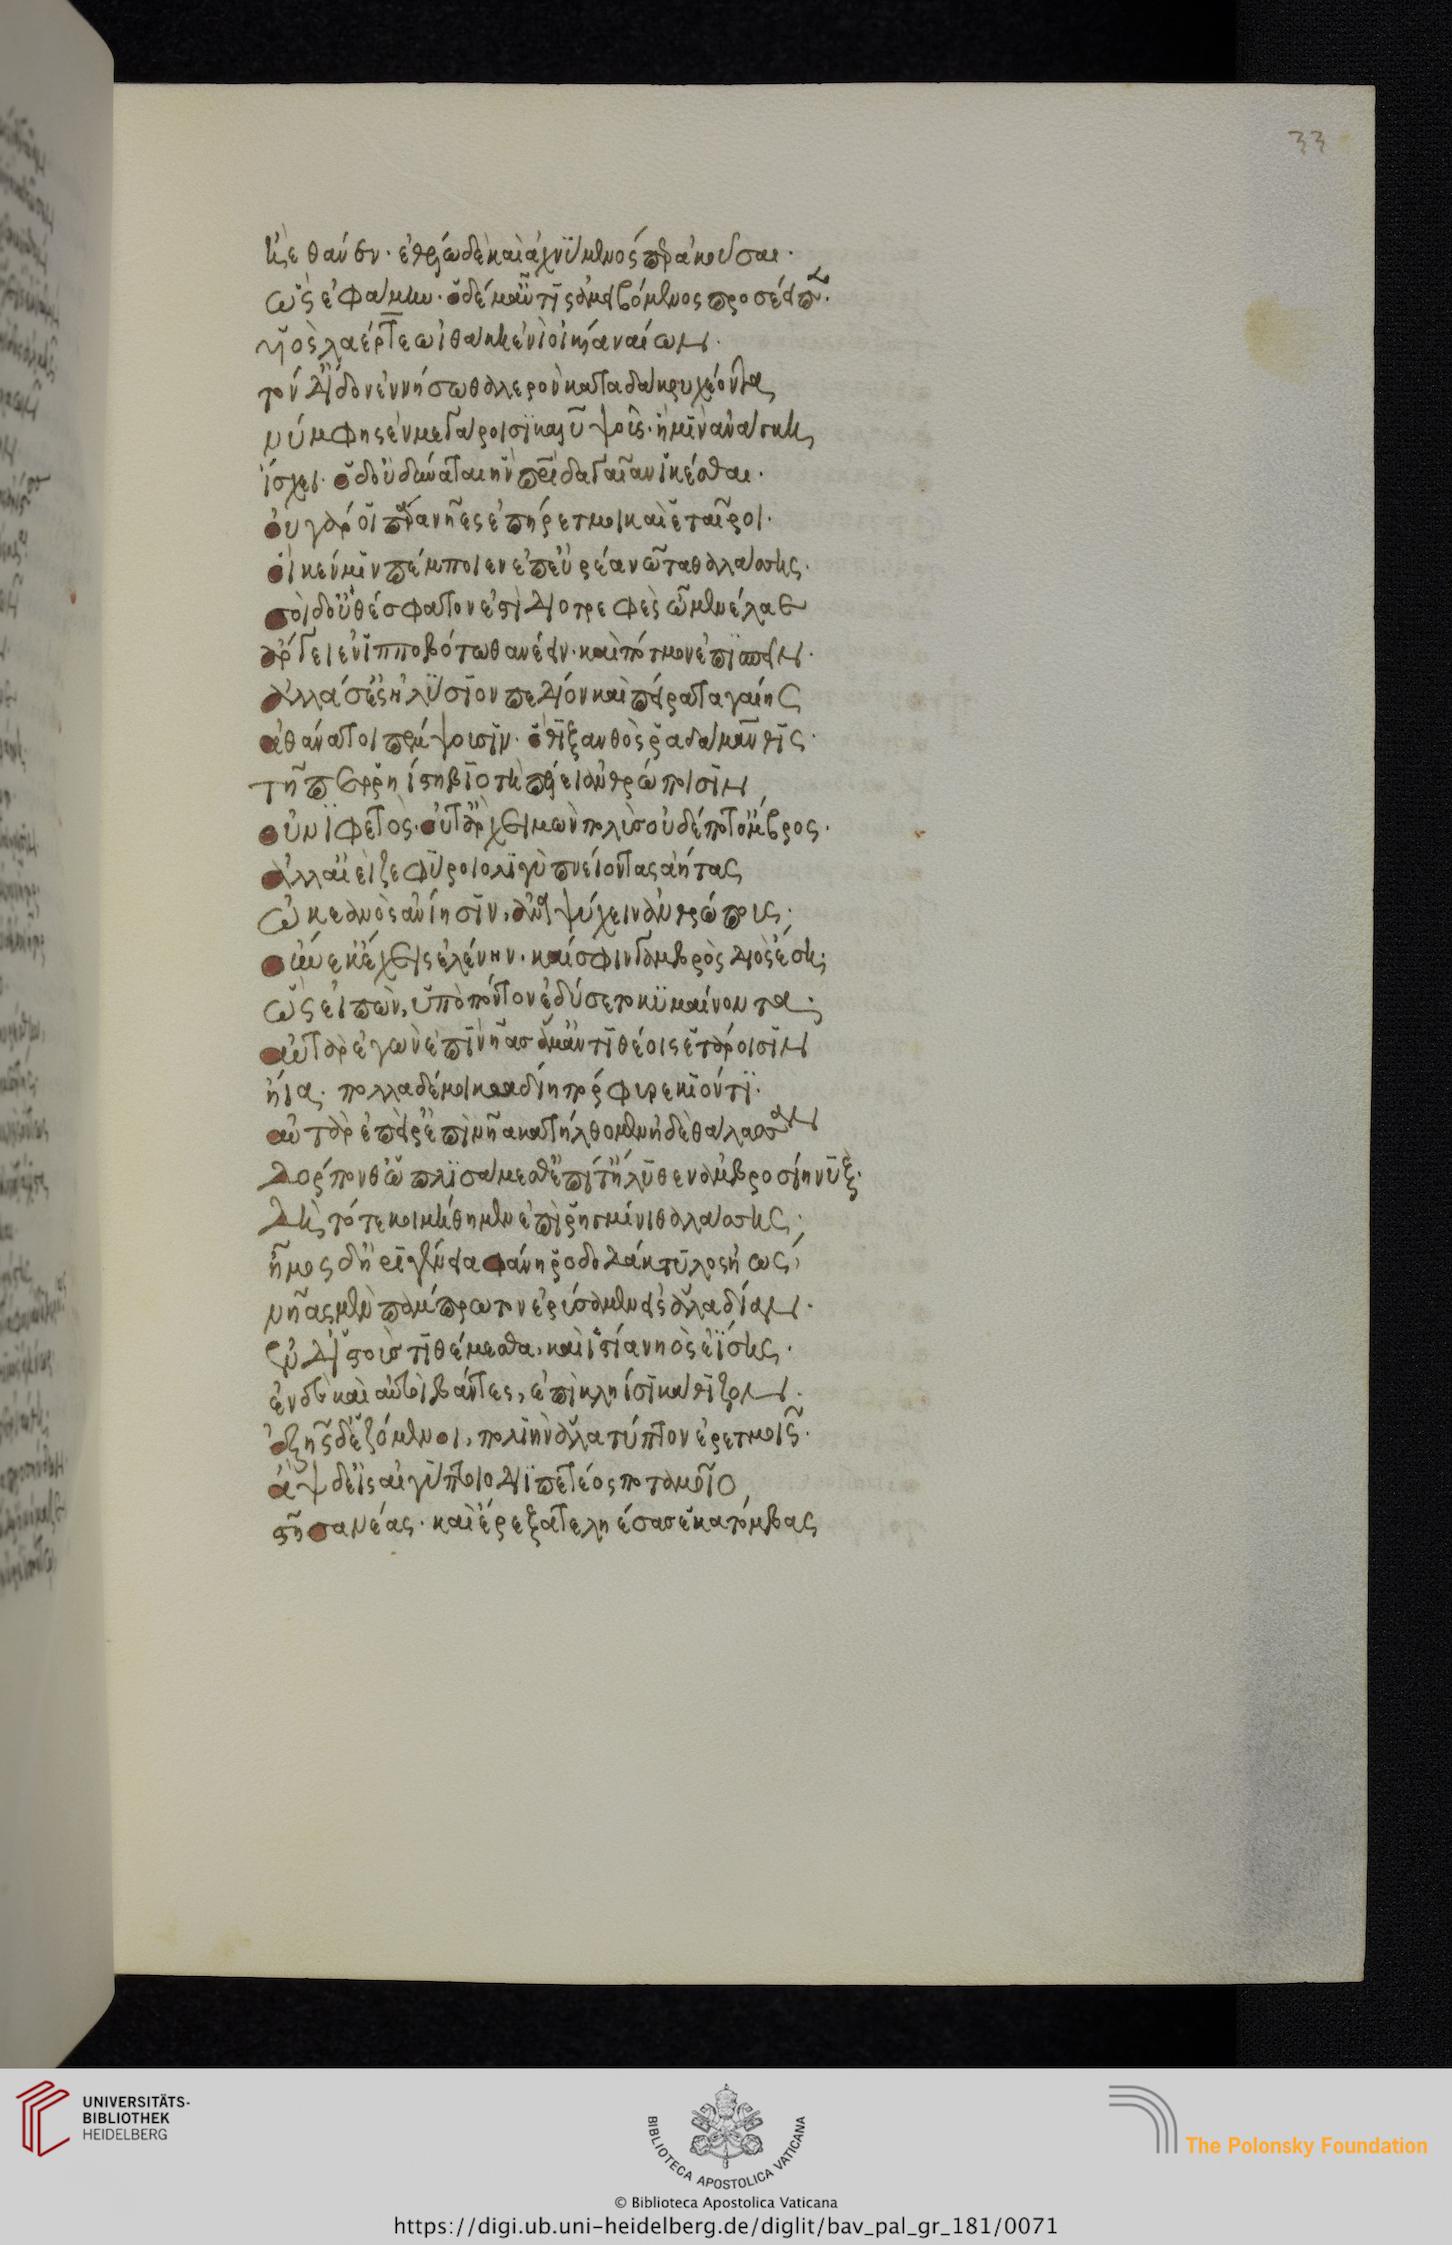 33
ἠὲ θανών· ἐθέλω δὲ καὶ ἀχνύμενός περ ἀκοῦσαι·
ὣς ἐφάμην· ὁ δέ μ' αὖτις ἀμειβόμενος προσέειπεν·
υἱὸς λαέρτεω ἰθάκῃ ἔνι οἰκία ναίων·
τὸν δ' ἴδον ἐν νήσω θαλερὸν κατὰ δάκρυ χέοντα,
νύμφης ἐν μεγάροισι καλυψοῦς· ἥ μιν ἀνάγκῃ,
ἴσχει· ὁ δ' οὐ δύναται ἣν πατρίδα γαῖαν ἱκέσθαι·
οὐ γάρ οἱ πάρα νῆες ἐπήρετμοι καὶ ἑταῖροι·
οἵ κέν μιν πέμποιεν ἐπ' εὐρέα νῶτα θαλάσσης·
σοὶ δ' οὐ θέσφατον ἐστὶ διοτρεφὲς ὦ μενέλαε
ἄργει ἐν ἱπποβότω θανέειν· καὶ πότμον ἐπισπεῖν·
ἀλλά σ' ἐς ἠλύσιον πεδίον καὶ πείρατα γαίης
ἀθάνατοι πέμψουσιν· ὅθι ξανθὸς ῥαδάμανθις·
τῇ περ ῥηίστη βιοτὴ πέλει ἀνθρώποισιν,
οὐ νιφετὸς· οὔτ' ἂρ χειμὼν πολὺς οὐδέ ποτ' ὄμβρος·
ἀλλ' αἰεὶ ζεφύροιο λιγὺ πνείοντας ἀήτας
ὠκεανὸς ἀνίησιν, ἀναψύχειν ἀνθρώπους·
οὕνεκ' ἔχεις ἑλένην· καί σφιν γαμβρὸς διός ἐσσι·
ὣς εἰπὼν, ὑπὸ πόντον ἐδύσετο κυμαίνοντα·
αὐτὰρ ἐγὼν ἐπὶ νῆας ἅμ' ἀντιθέοις ἑτάροισιν
ἤια· πολλὰ δέ μοι κραδίη πόρφυρε κιόντι·
αὐτὰρ ἐπεί ῥ' ἐπὶ νῆα κατήλθομεν ἠδὲ θάλασσαν
δόρπον θ' ὡπλισάμεσθ' ἐπί τ' ἤλυθεν ἀμβροσίη νύξ·
δὴ τότε κοιμήθημεν ἐπὶ ῥηγμῖνι θαλάσσης·
ἦμος δ' ἠριγένεια φάνη ῥοδοδάκτυλος ἠώς,
νῆας μὲν πάμπρωτον ἐρύσαμεν εἰς ἅλα δῖαν·
ἐν δ' ἱστοὺς τιθέμεσθα, καὶ ἱστία νηὸς ἐΐσης·
ἐν δὲ καὶ αὐτοὶ βάντες, ἐπὶ κληῖσι κάθιζον·
ἑξῆς δ' ἑζόμενοι, πολιὴν ἅλα τύπτον ἐρετμοῖς·
ἂψ δ' εἰς αἰγύπτοιο διιπετέος ποταμοῖο,
στῆσα νέας· καὶ ἔρεξα τεληέσσας ἑκατόμβας
UNIVERSITÄTS-
BIBLIOTHEK
HEIDELBERG
BIBLIOTECA APOSTOLICA VATICANA
© Biblioteca Apostolica Vaticana
The Polonsky Foundation
https://digi.ub.uni-heidelberg.de/diglit/bav_pal_gr_181/0071